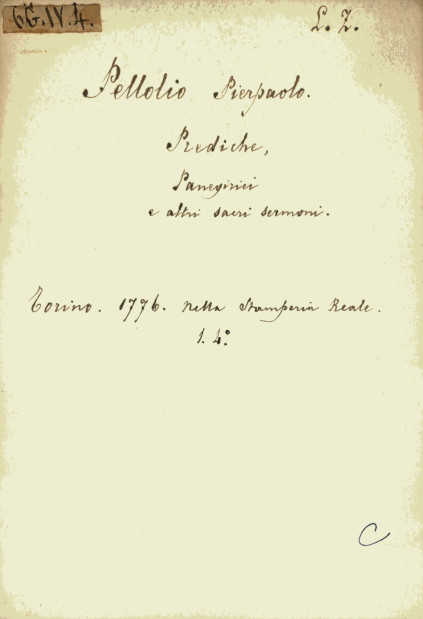 6G.IV.4.
L. Z.
Pellolio Pierpaolo.
Prediche,
Panegirici
e altri sacri sermoni.
Torino. 1776. nella Stamperia Reale.
1. 4°
C